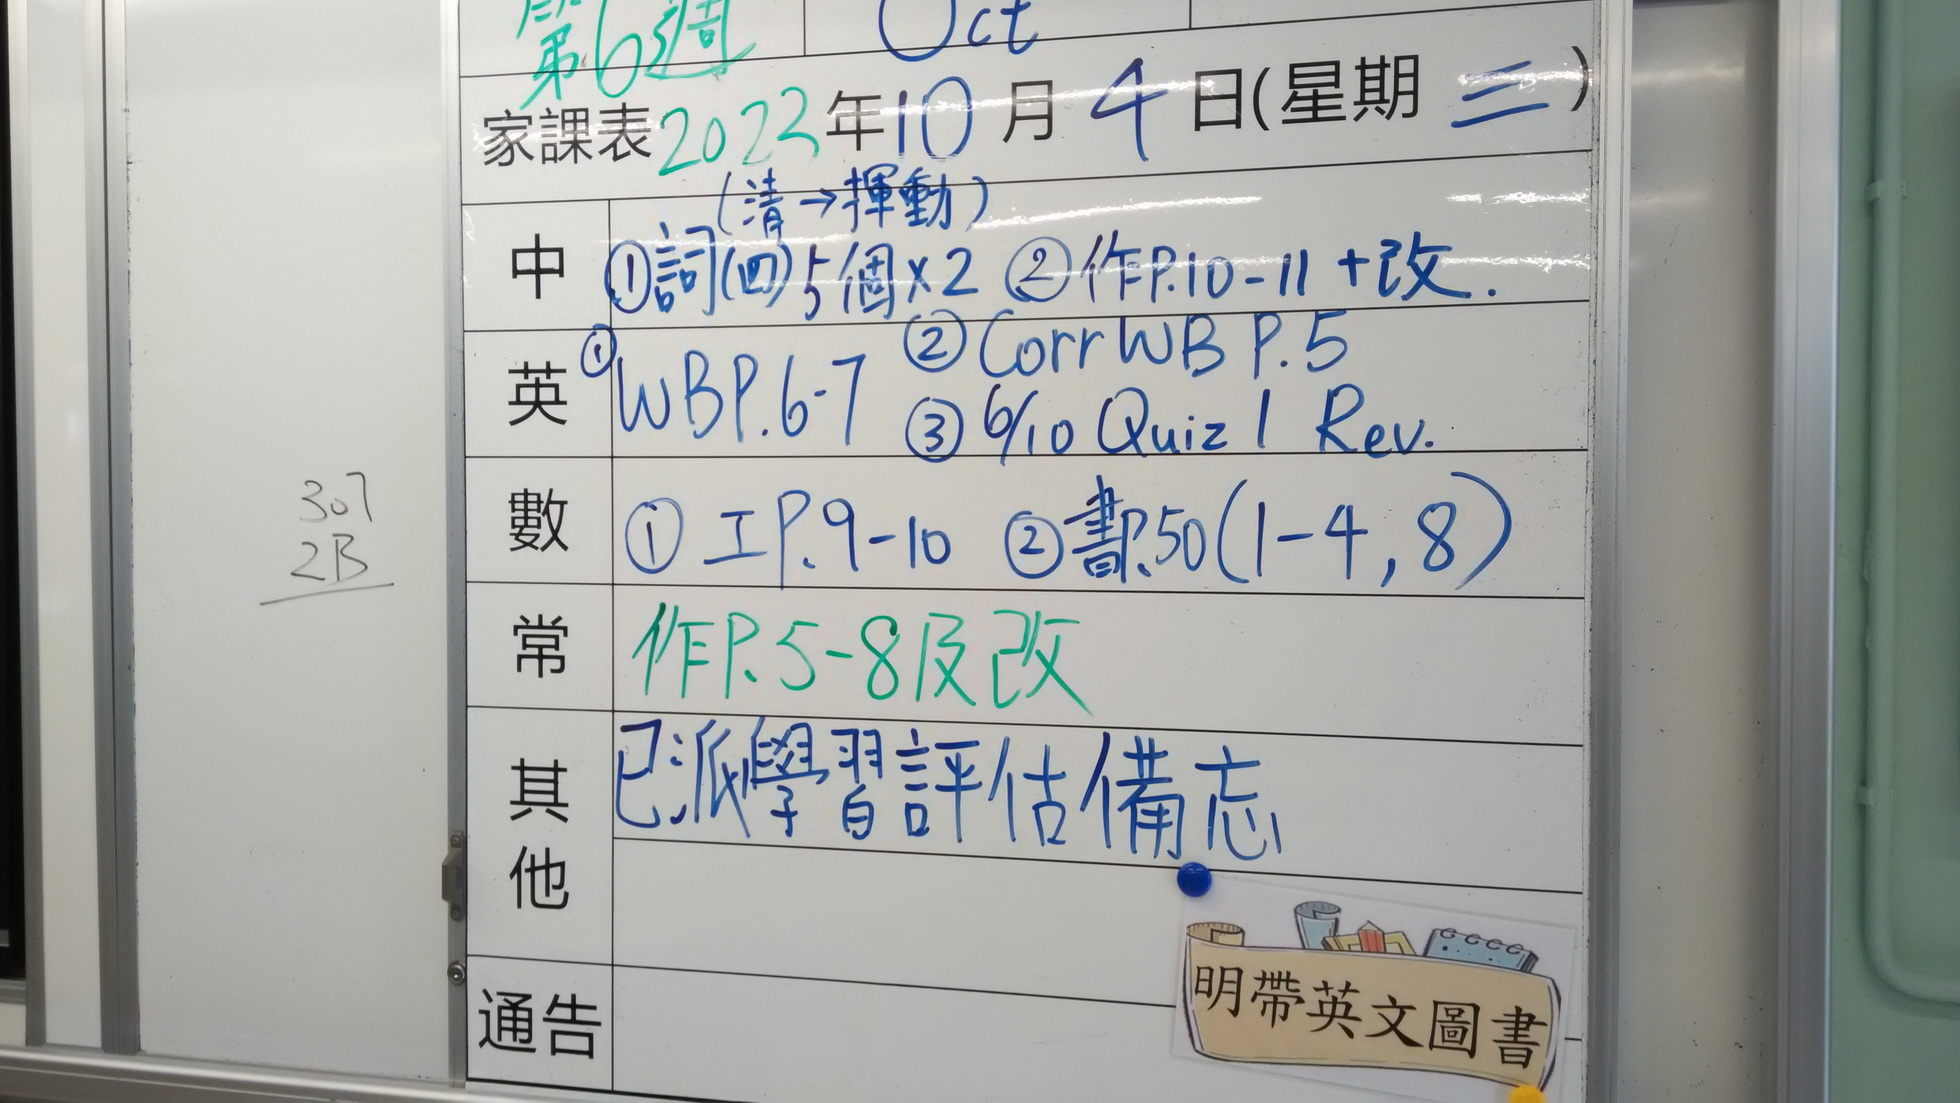 第6週 Oct
家課表2023年10月4日(星期三)
(清→揮動)
中 ①詞(四)5個×2 ②作P.10-11+改.
英 ①WBP.6-7 ②Corr WB P.5
③6/10 Quiz 1 Rev.
數 ①工P.9-10 ②書P.50(1-4,8)
常 作P.5-8及改
其他 已派學習評估備忘
通告
明帶英文圖書
307
2B